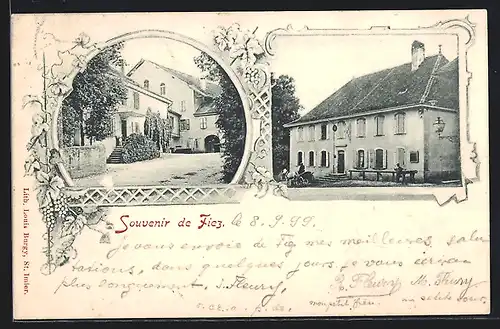 Souvenir de Fiez, le 8.9.99.
Je vous envoie de Fiez mes meilleures salu
tations, dans quelques jours je vous écrirai
plus longuement. J. Fleury, R. Fleury M. Fleury
mon petit frère
Lith. Louis Burgy, St. Imier.